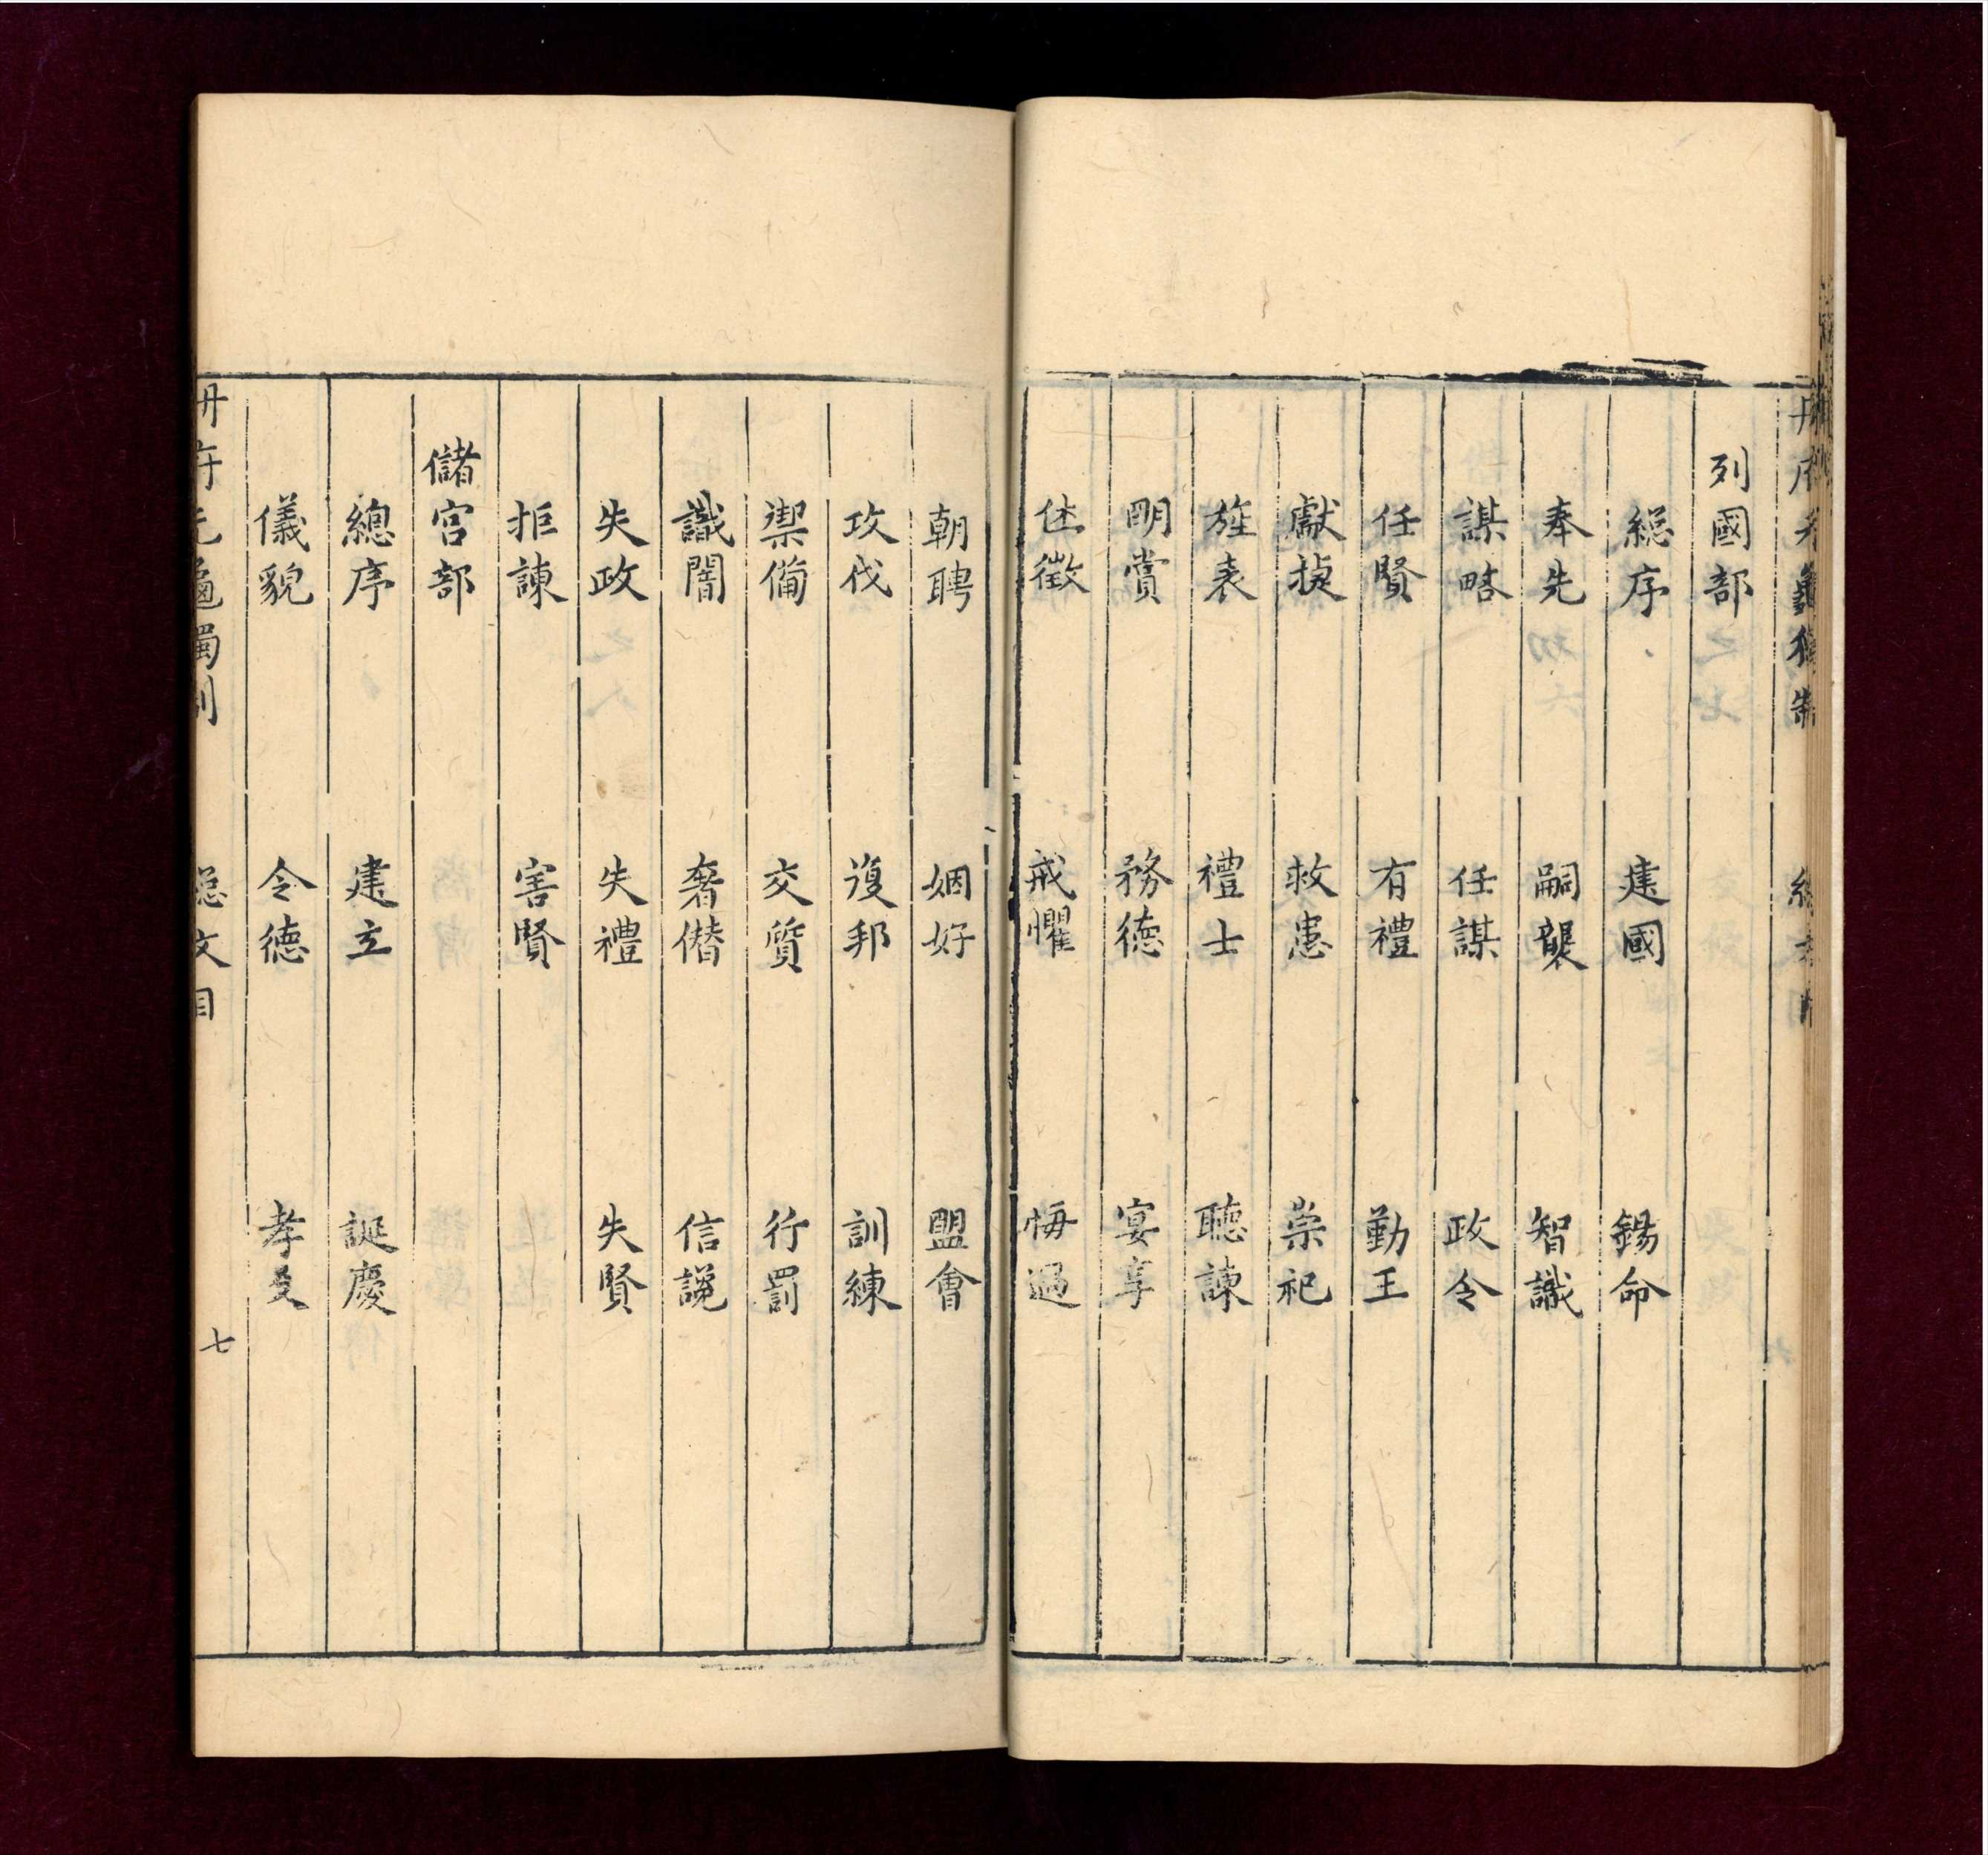 列國部
總序 建國 錫命
奉先 嗣襲 智識
謀略 任謀 政令
任賢 有禮 勤王
獻捷 救患 崇祀
旌表 禮士 聽諫
明賞 務德 宴享
休徵 戒懼 悔過
朝聘 姻好 盟會
攻伐 復邦 訓練
禦備 交質 行罰
識闇 奢僭 信讒
失政 失禮 失賢
拒諫 害賢
儲宮部
總序 建立 誕慶
儀貌 令德 孝友
冊府元龜獨制 總文目 七